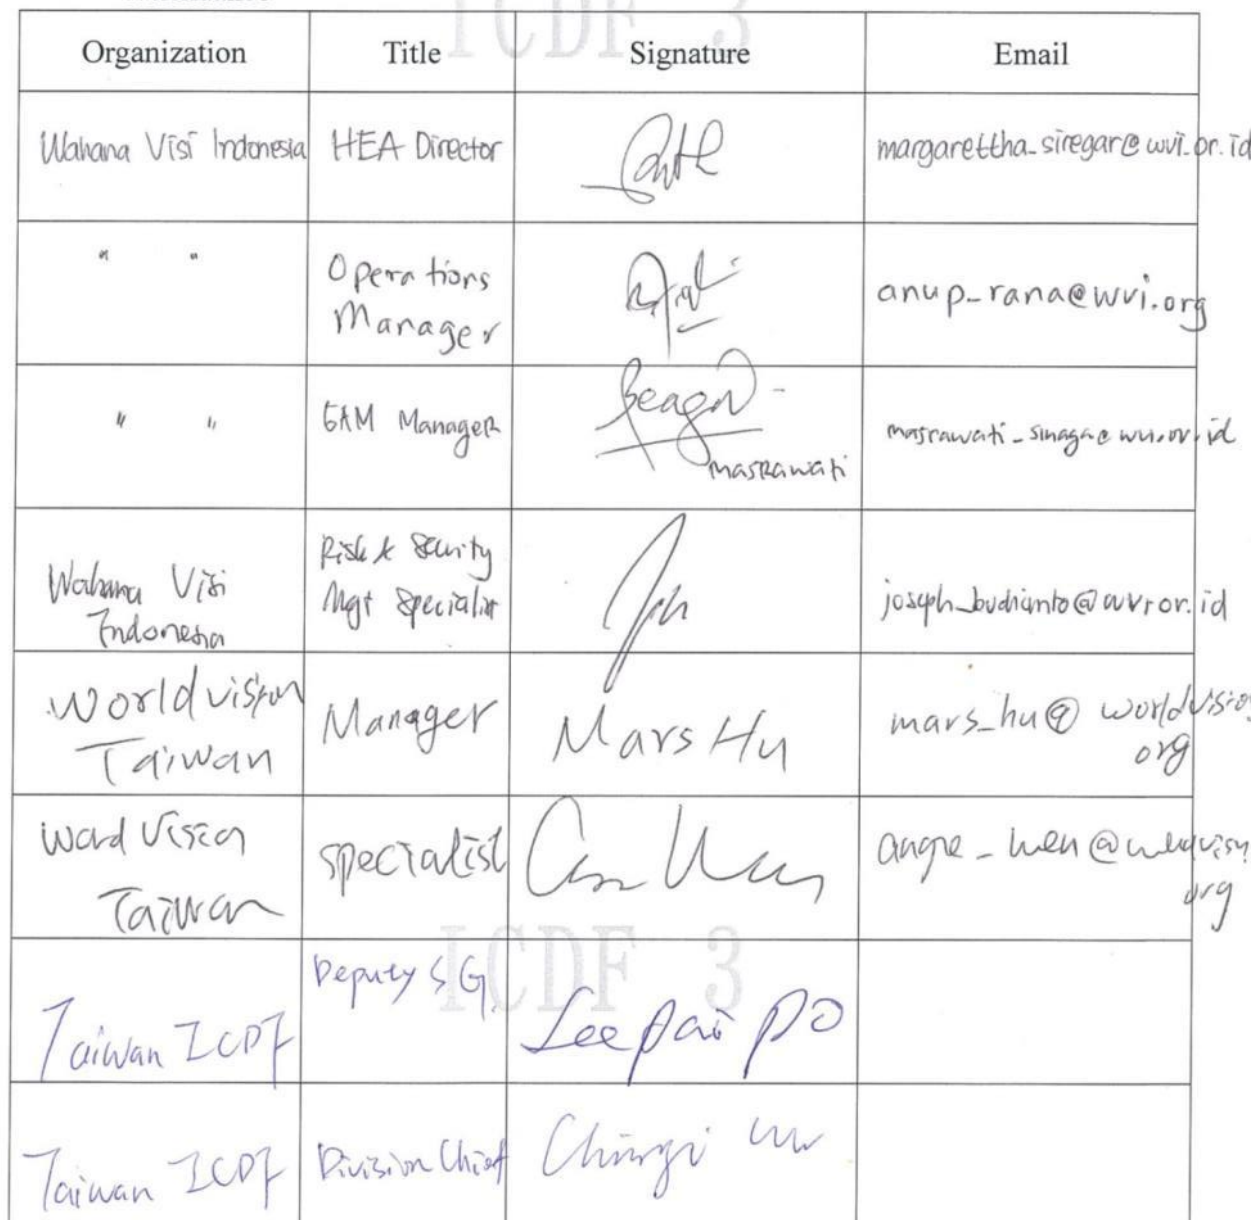 ICDF 3
Organization Title Signature Email
Wahana Visi Indonesia HEA Director margarettha_siregar@wvi.or.id
" " Operations Manager anup_rana@wvi.org
" " GAM Manager masrawati masrawati_sinaga@wvi.or.id
Wahana Visi Indonesia Risk & Security Mgt Specialist joseph_budianto@wvi.or.id
World vision Taiwan Manager Mars Hu mars_hu@worldvision.org
Word Vision Taiwan specialist
ICDF 3
Taiwan ICDF Deputy S G. Lee Pai Po
Taiwan ICDF Division Chief